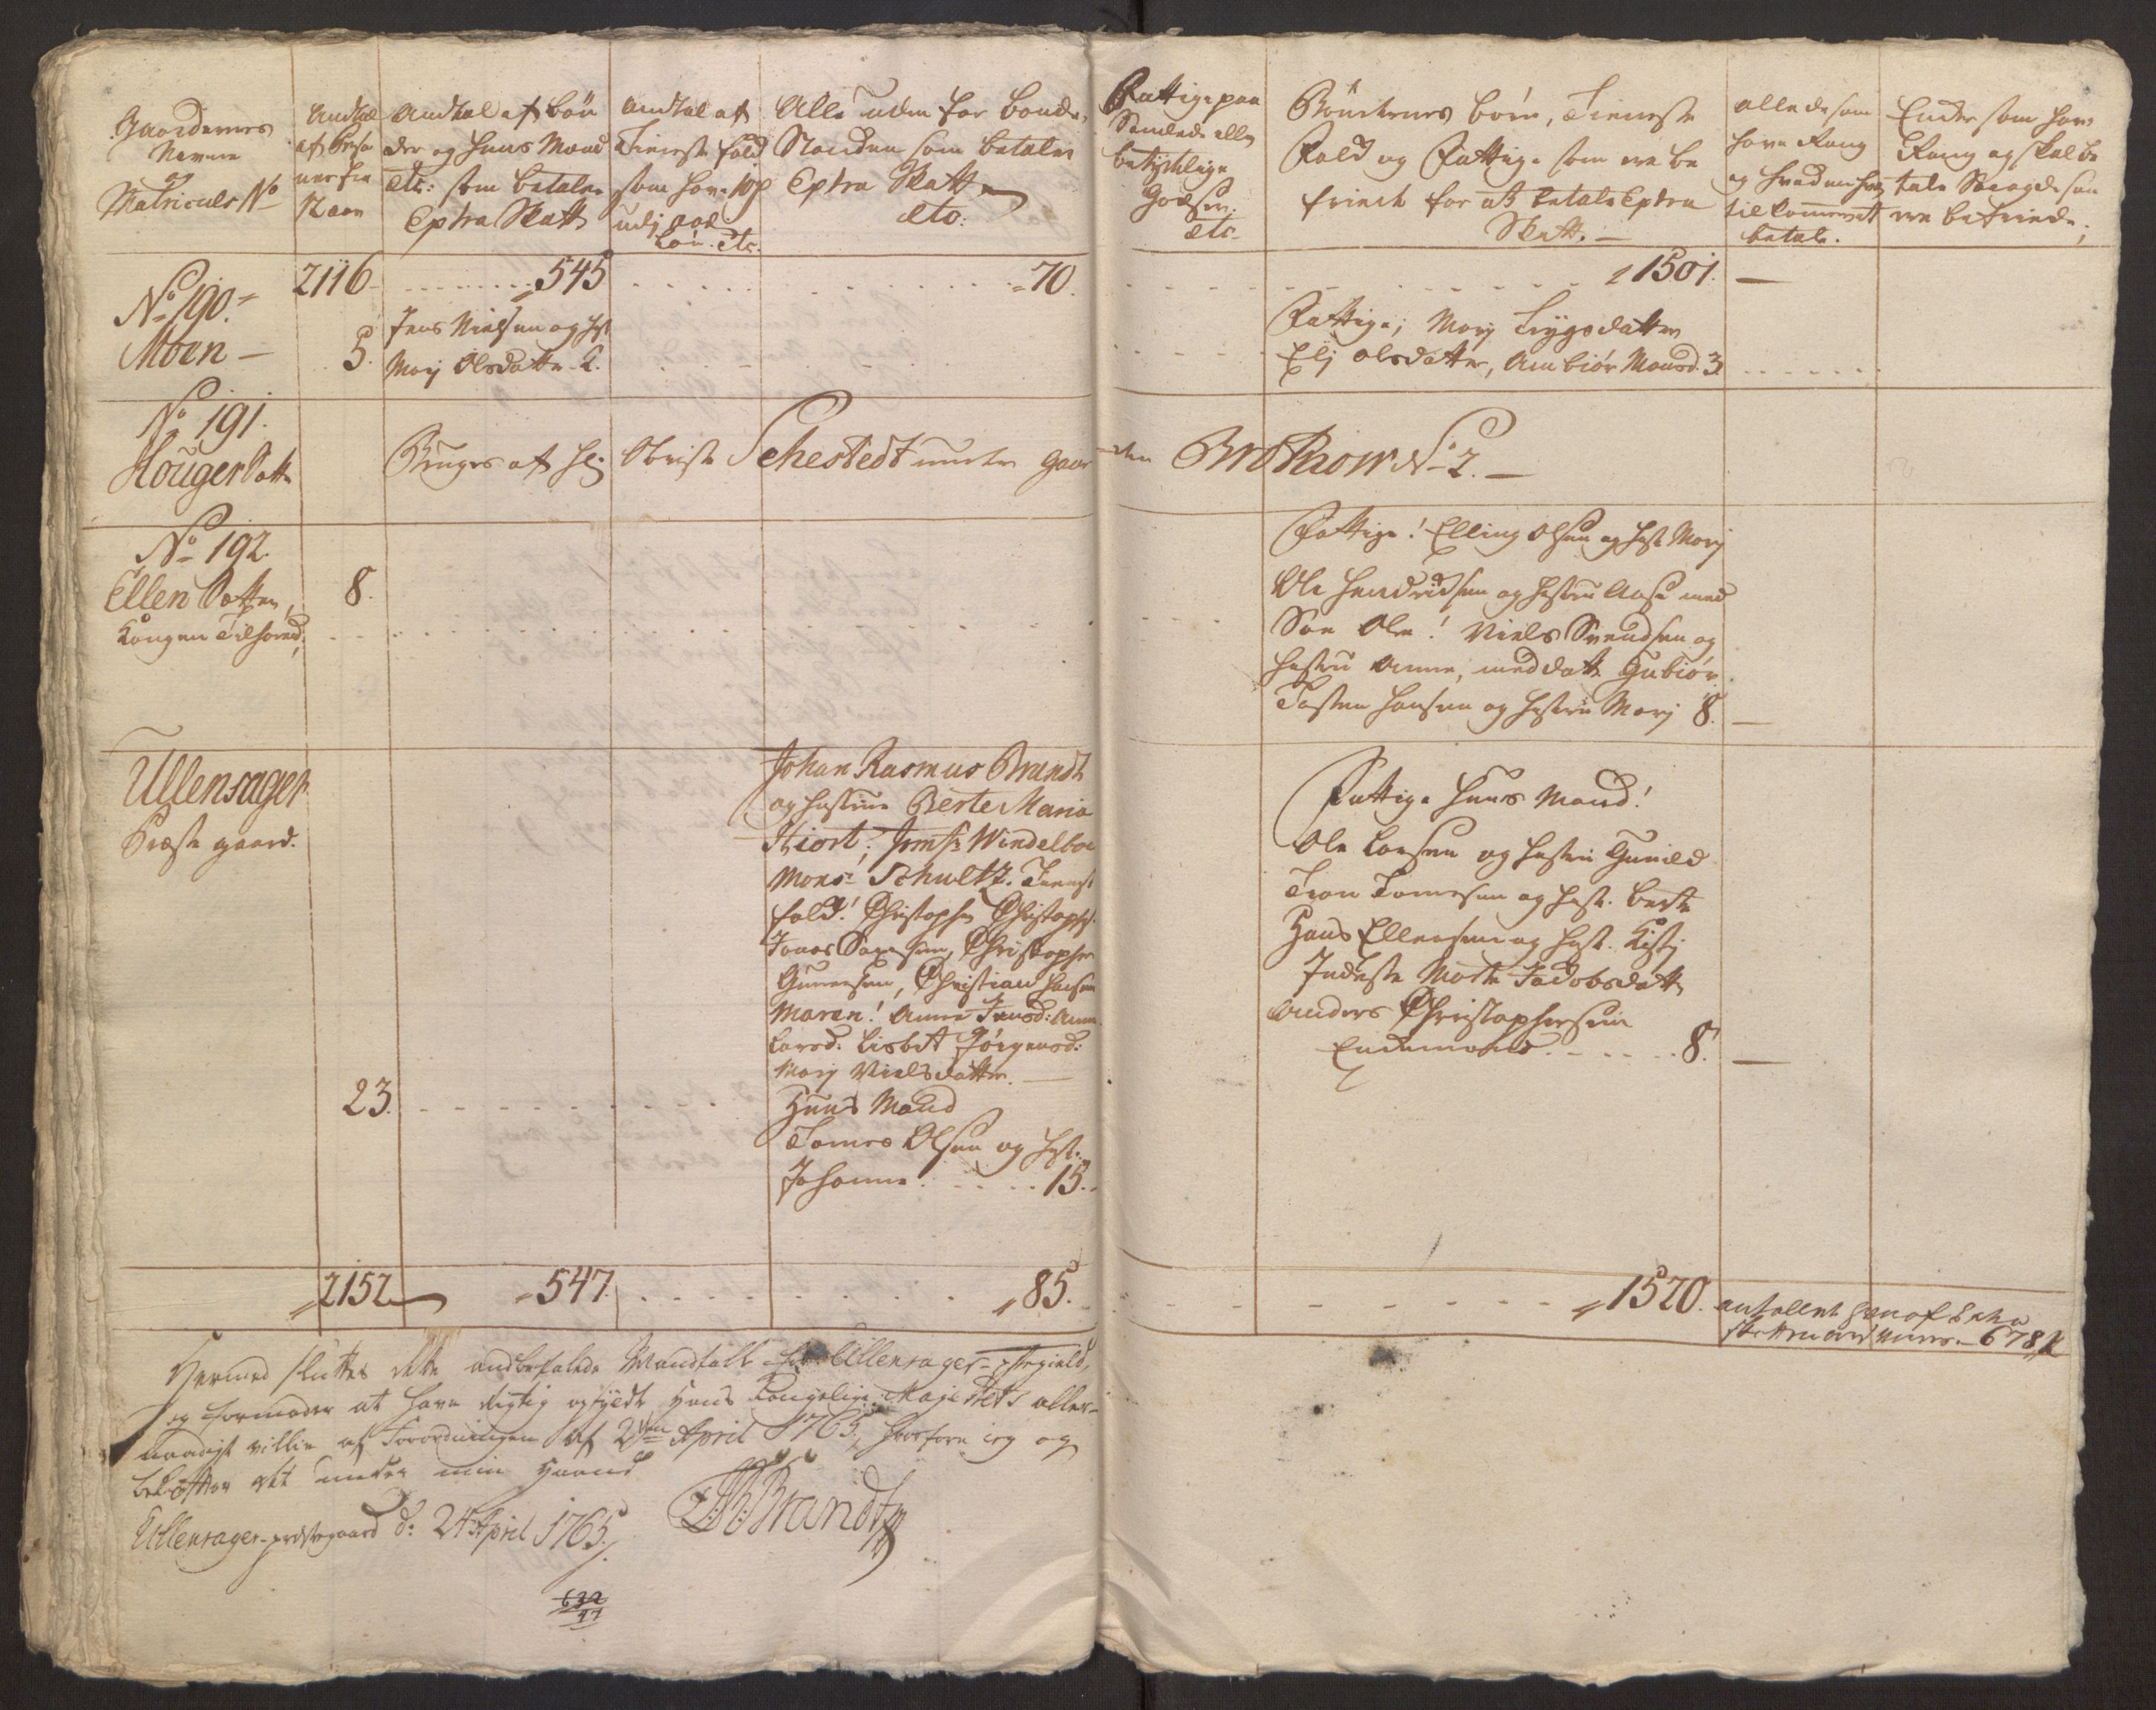 Gaardernes
Navne
og
Matriculs No
Andtal
af Perso
ner fra
12 Aar
Andtal af Bön
der og Huus Mænd
etc: som betaler
Extra Skatt
Andtal af
Tieneste folck
som have 10 rd
udj aarl
Lön. etc.
Alle uden for Bonde
Standen som betaler
Extra Skatt
etc:
Fattige paa
Samlede eller
betydelige
Godser.
etc
Böndernes börn, Tieneste
Folck og Fattige som ere be
friede for at betale Extra
Skatt.
alle de som
have Rang
og hvad enhver
tilkommer at
betale.
Ender som have
Rang og skal be
tale Saa og de som
ere befriede;
2116
545
70.
1501.
No 190.
Moen
5.
Jens Nielsen og hst
Marj Olsdatter 2.
Fattige; Marj Trygsdatter
Elj Olsdatter, Anbiör Monsd. 3.
No 191.
Hougersatter
Bruges af Hr Obrist Sehestedt under Gaar
den Brotnow No 2.
No 192.
Ellensatter,
Kongen Tilhörend;
8.
Fattige! Elling Olsen og hst Marj
Ole Hendricksen og hustru Aase med
Sön Ole! Niels Svendsen og
hustru Anne, med datt. Gubiör.
Tosten Hansen og hustru Marj 8.
Ullensager
Præste gaard.
Johan Rasmus Brandt
og hustrue Berte Maria
Hiort; Jomfr Windelboe
Mons: Schultz. Tienest
folck! Christopher Christophs:
Jonas Svensen, Christopher
Gunersen, Christian Hansen
Maren! Anne Jensd: Anne
Larsd: Lisbet Jörgensd:
Marj Nielsdatter.
23.
Huus Mænd
Tomes Olsen og hst.
Johanne 15.
Fattige Huus Mænd!
Ole Larsen og hustru Gunild
Tron Tomesen og hust. Berte
Hans Ellensen og hust. Kisti
Inderste Marte Jacobsdatter
Anders Christophersen
Enckemand 8.
2152
547.
85.
1520.
antallet heraf Extra
Skatten ere 678
Hermed sluttes dette andbefalede Mandtall for Ullensager-præstegield,
jeg formoder at have rigtig opfyldt Hans Kongelige Majestets aller-
naadigst villie af Forordningen af 2den April 1765, hvorfore ieg og
bekræfter det under min Haand
Ullensager-præstegaard d: 24 April 1765.
J:R: Brandt
632
47